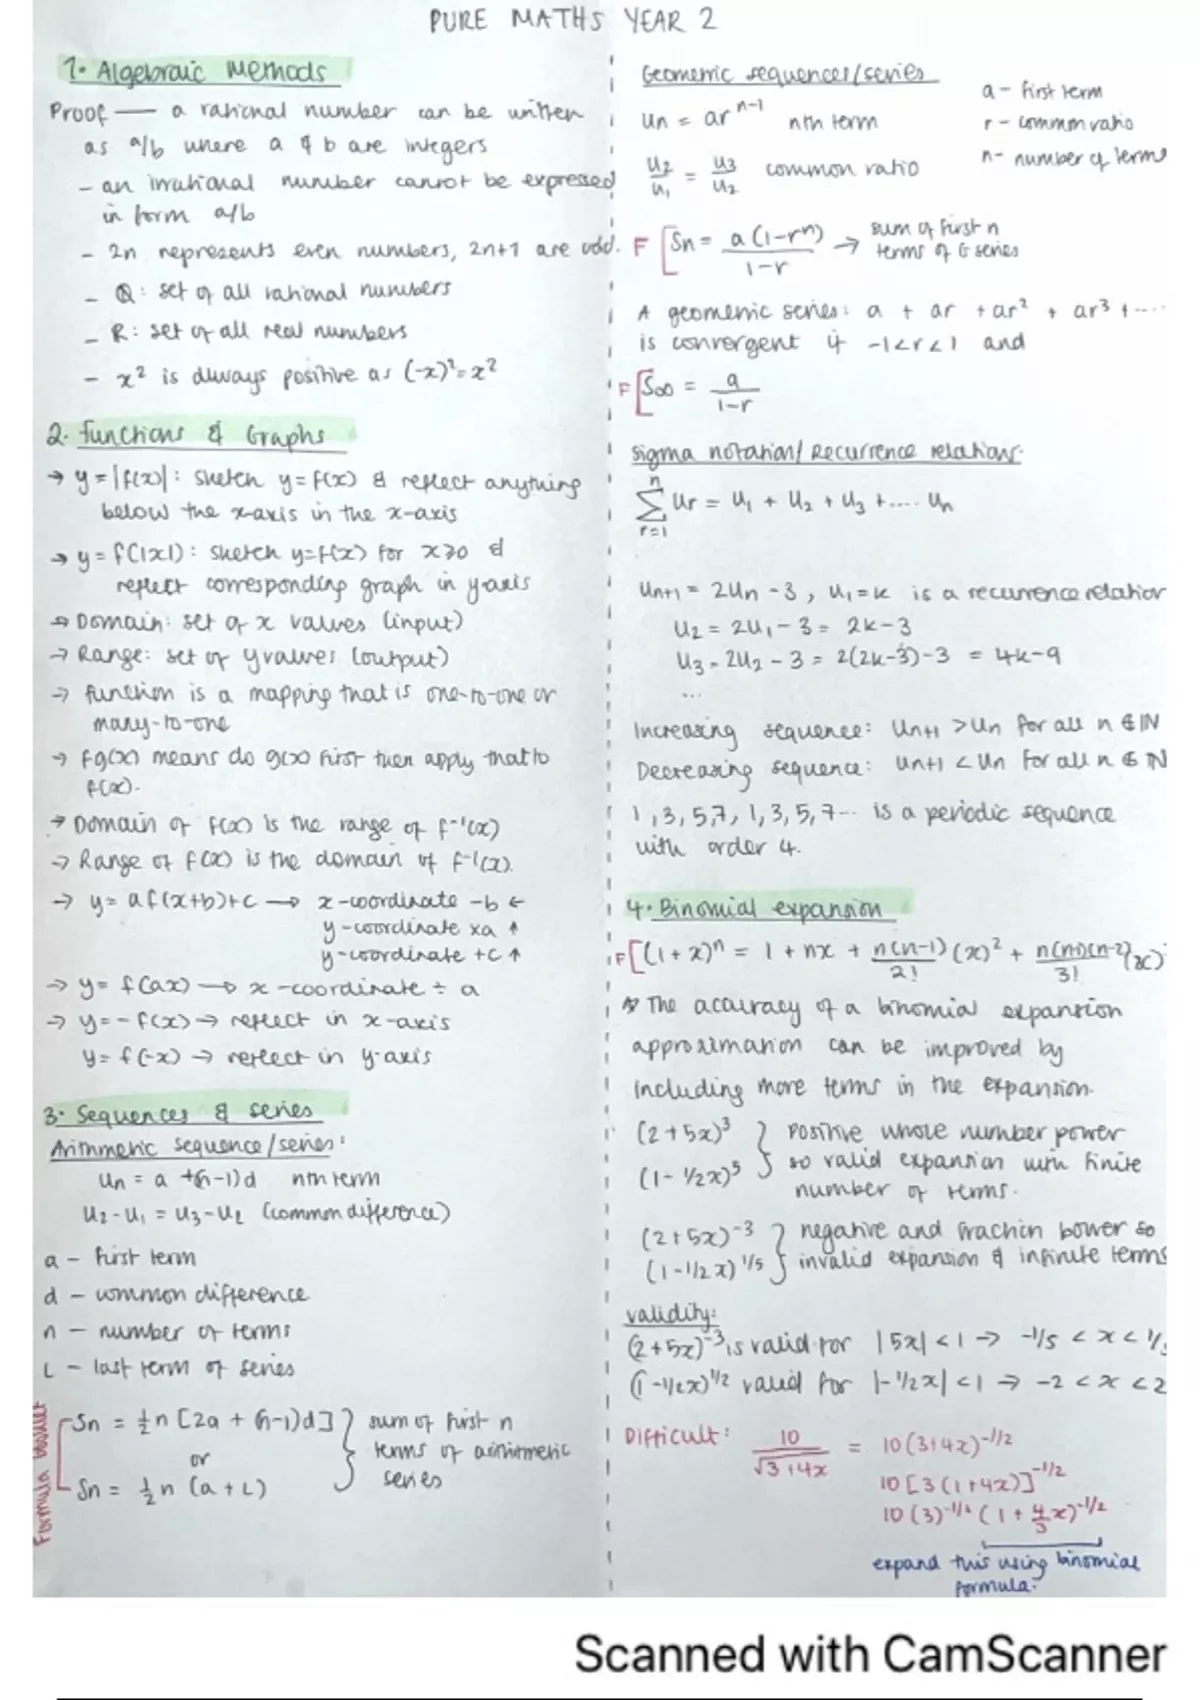 PURE MATHS YEAR 2
1. Algebraic Methods
Proof — a rational number can be written
as a/b where a & b are integers
- an irrational number cannot be expressed
in form a/b
- 2n represents even numbers, 2n+1 are odd.
- Q: set of all rational numbers
- R: set of all real numbers
- x² is always positive as (-x)²=x²
2. Functions & Graphs
→ y=|f(x)|: sketch y=f(x) & reflect anything
below the x-axis in the x-axis
→ y=f(|x|): sketch y=f(x) for x≥0 &
reflect corresponding graph in y-axis
→ Domain: set of x values (input)
→ Range: set of y values (output)
→ function is a mapping that is one-to-one or
many-to-one
→ fg(x) means do g(x) first then apply that to
f(x).
→ Domain of f(x) is the range of f⁻¹(x)
→ Range of f(x) is the domain of f⁻¹(x).
→ y= af(x+b)+c → x-coordinate -b ←
y-coordinate xa ↑
y-coordinate +c ↑
→ y= f(ax) → x-coordinate ÷ a
→ y=-f(x) → reflect in x-axis
y= f(-x) → reflect in y-axis
3. Sequences & series
Arithmetic sequence/series:
Un = a +(n-1)d nth term
U₂-U₁ = U₃-U₂ (common difference)
a - first term
d - common difference
n - number of terms
L - last term of series
Formula booklet
Sn = ½n [2a + (n-1)d] } sum of first n
or terms of arithmetic
Sn = ½n (a+L) series
Geometric sequences/series
a - first term
Un = arⁿ⁻¹ nth term
r - common ratio
n - number of terms
U₂/U₁ = U₃/U₂ common ratio
F [Sn = a(1-rⁿ)/1-r → sum of first n
terms of G series
A geometric series: a + ar +ar² + ar³ +....
is convergent if -1<r<1 and
F [S∞ = a/1-r
Sigma notation/Recurrence relations.
n
∑ Ur = U₁ + U₂ + U₃ +.... Un
r=1
Un+1 = 2Un -3, U₁=k is a recurrence relation
U₂ = 2U₁ - 3 = 2k-3
U₃ = 2U₂ - 3 = 2(2k-3)-3 = 4k-9
...
Increasing sequence: Un+1 >Un for all n ∈ ℕ
Decreasing sequence: Un+1 < Un for all n ∈ ℕ
1,3,5,7,1,3,5,7... is a periodic sequence
with order 4.
4. Binomial expansion
F [(1+x)ⁿ = 1 + nx + n(n-1)/2! (x)² + n(n-1)(n-2)/3! (x)
The accuracy of a binomial expansion
approximation can be improved by
including more terms in the expansion.
(2+5x)³ } positive whole number power
(1-½x)⁵ so valid expansion with finite
number of terms.
(2+5x)⁻³ } negative and fraction power so
(1-1/2x)^1/5 invalid expansion & infinite terms
validity:
(2+5x)⁻³ is valid for |5x|<1 → -1/5 < x < 1/
(1-1/2x)^1/2 valid for |-1/2x|<1 → -2 < x < 2
Difficult: 10/√3+4x = 10(3+4x)^-1/2
10[3(1+4x)]^-1/2
10(3)^-1/2 (1+4/3x)^-1/2
expand this using binomial
formula.
Scanned with CamScanner